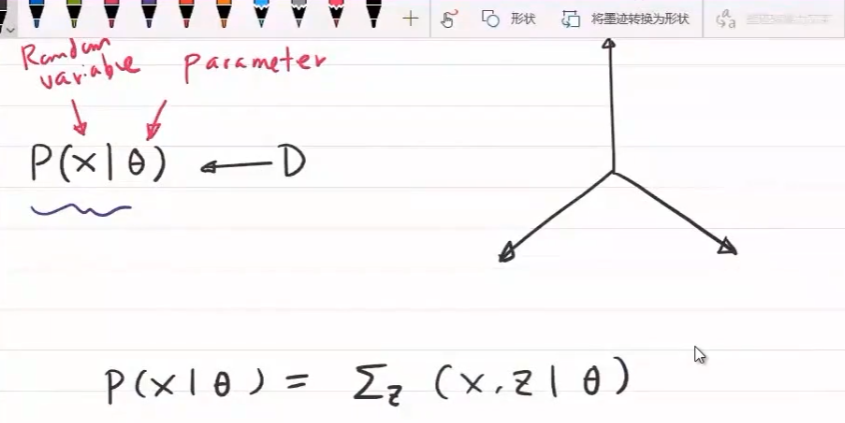 形状 将墨迹转换为形状
Random variable parameter
P(x|θ) ← D
P(x|θ) = Σz (x,z|θ)